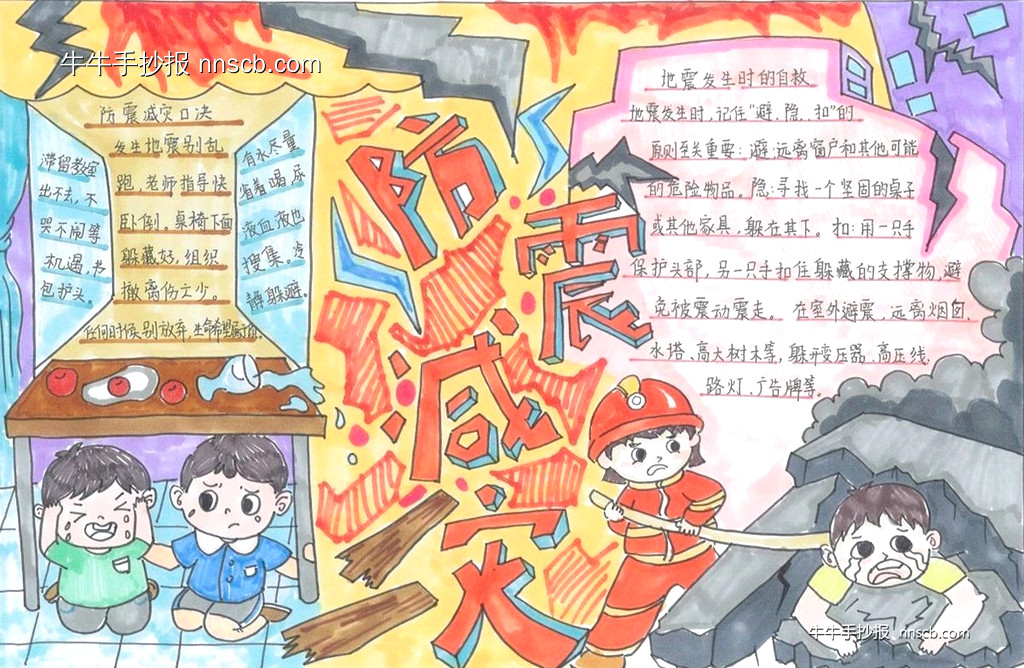 牛牛手抄报 nnscb.com
防震减灾口决
发生地震别乱
跑,老师指导快
卧倒。桌椅下面
躲藏好,组织
撤离伤亡少。
滞留教室
出不去,不
哭不闹等
机遇,书
包护头。
有水尽量
省着喝,尿
液血液也
搜集。冷
静躲避。
任何时候别放弃,生命希望
防震
减灾
地震发生时的自救
地震发生时,记住“避、隐、扣”的
原则至关重要:避:远离窗户和其他可能
的危险物品。隐:寻找一个坚固的桌子
或其他家具,躲在其下。扣:用一只手
保护头部,另一只手扣住躲藏的支撑物,避
免被震动震走。在室外避震,远离烟囱、
水塔、高大树木等,躲开变压器、高压线、
路灯、广告牌等。
牛牛手抄报 nnscb.com